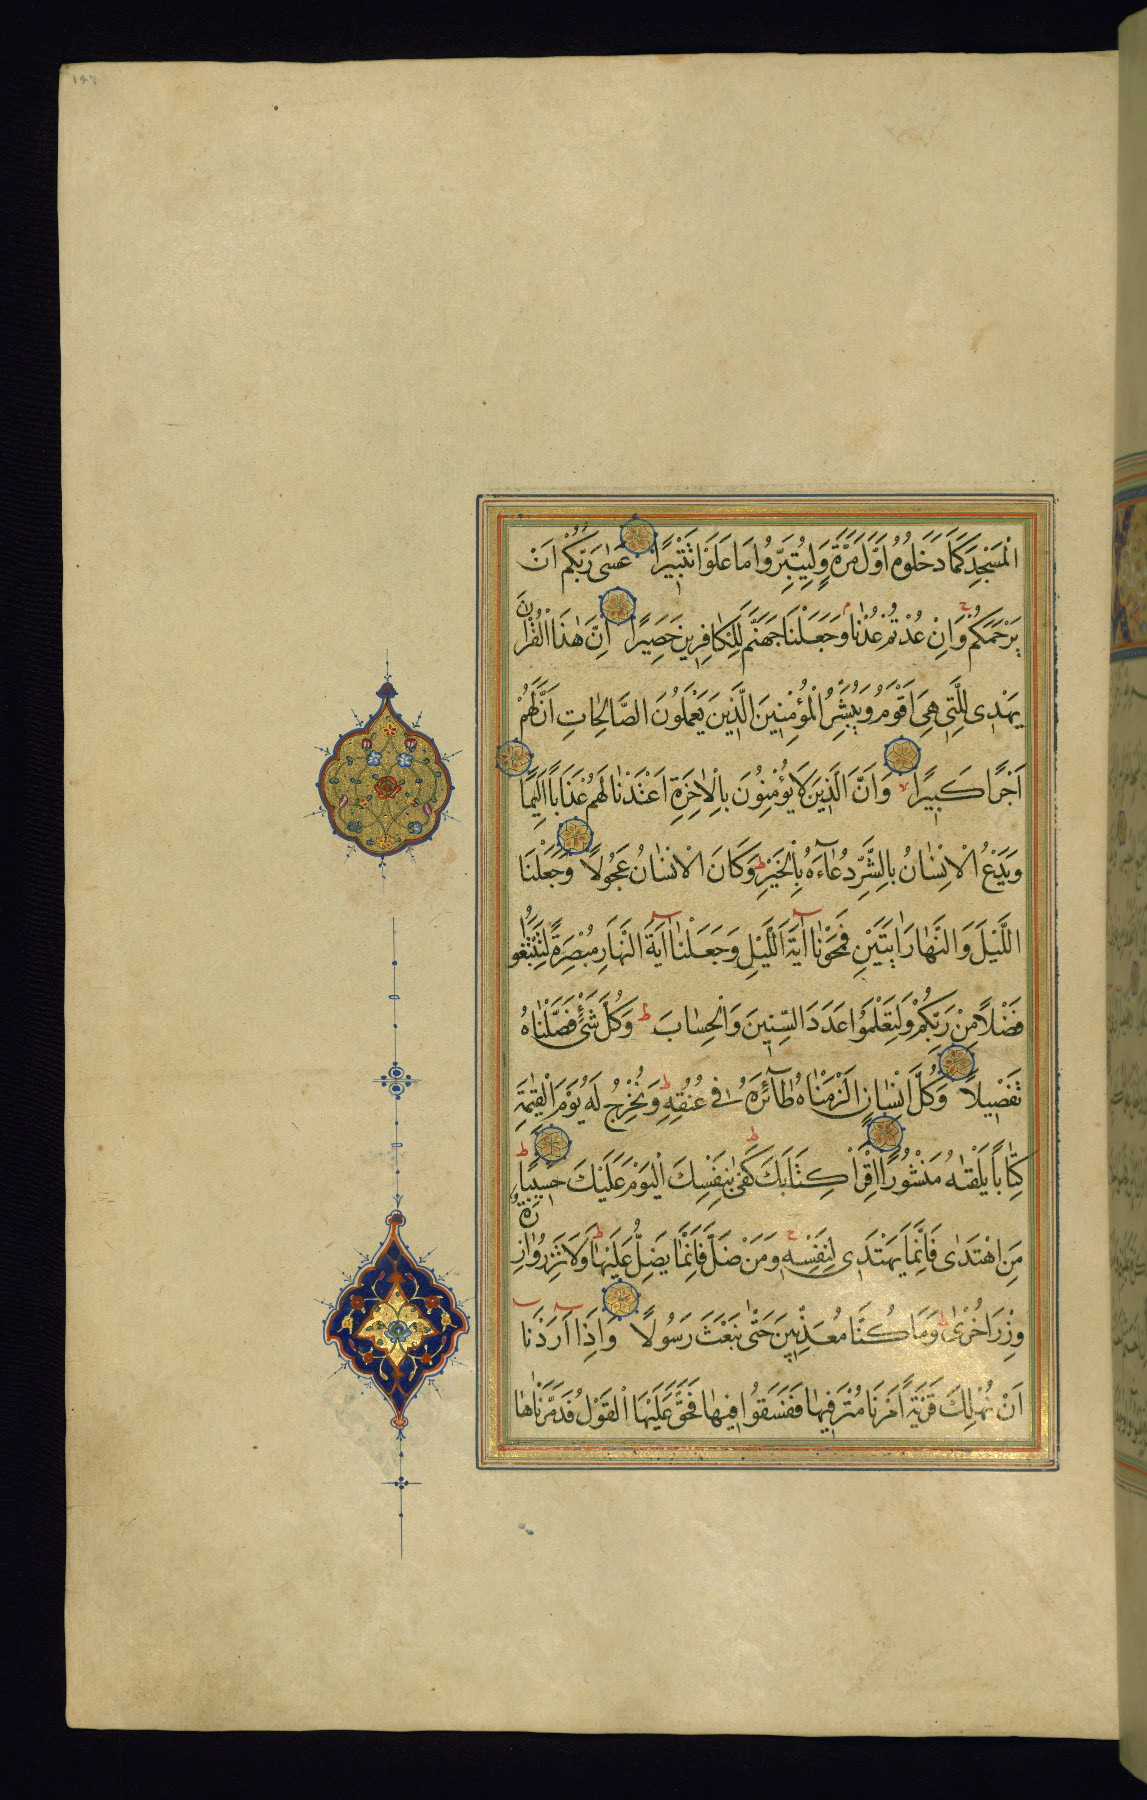 الْمَسْجِدَ كَمَا دَخَلُوهُ اَوَّلَ مَرَّةٍ وَلِيُتَبِّرُوا مَا عَلَوْا تَتْبِيرًا عَسٰى رَبُّكُمْ اَنْ
يَرْحَمَكُمْ وَاِنْ عُدْتُمْ عُدْنَا وَجَعَلْنَا جَهَنَّمَ لِلْكَافِرِينَ حَصِيرًا اِنَّ هٰذَا الْقُرْاٰنَ
يَهْدِى لِلَّتِى هِىَ اَقْوَمُ وَيُبَشِّرُ الْمُؤْمِنِينَ الَّذِينَ يَعْمَلُونَ الصَّالِحَاتِ اَنَّ لَهُمْ
اَجْرًا كَبِيرًا وَاَنَّ الَّذِينَ لَا يُؤْمِنُونَ بِالْاٰخِرَةِ اَعْتَدْنَا لَهُمْ عَذَابًا اَلِيمًا
وَيَدْعُ الْاِنْسَانُ بِالشَّرِّ دُعَاءَهُ بِالْخَيْرِ ط وَكَانَ الْاِنْسَانُ عَجُولًا وَجَعَلْنَا
اللَّيْلَ وَالنَّهَارَ اٰيَتَيْنِ فَمَحَوْنَا اٰيَةَ اللَّيْلِ وَجَعَلْنَا اٰيَةَ النَّهَارِ مُبْصِرَةً لِتَبْتَغُوا
فَضْلًا مِنْ رَبِّكُمْ وَلِتَعْلَمُوا عَدَدَ السِّنِينَ وَالْحِسَابَ ط وَكُلَّ شَىْءٍ فَصَّلْنَاهُ
تَفْصِيلًا وَكُلَّ اِنْسَانٍ اَلْزَمْنَاهُ طَائِرَهُ فِى عُنُقِهِ ط وَنُخْرِجُ لَهُ يَوْمَ الْقِيٰمَةِ
كِتَابًا يَلْقٰيهُ مَنْشُورًا اِقْرَاْ كِتَابَكَ ط كَفٰى بِنَفْسِكَ الْيَوْمَ عَلَيْكَ حَسِيبًا ط
مَنِ اهْتَدٰى فَاِنَّمَا يَهْتَدِى لِنَفْسِهِ ج وَمَنْ ضَلَّ فَاِنَّمَا يَضِلُّ عَلَيْهَا ط وَلَا تَزِرُ وَازِرَةٌ
وِزْرَ اُخْرٰى ط وَمَا كُنَّا مُعَذِّبِينَ حَتّٰى نَبْعَثَ رَسُولًا وَاِذَا اَرَدْنَا
اَنْ نُهْلِكَ قَرْيَةً اَمَرْنَا مُتْرَفِيهَا فَفَسَقُوا فِيهَا فَحَقَّ عَلَيْهَا الْقَوْلُ فَدَمَّرْنَاهَا